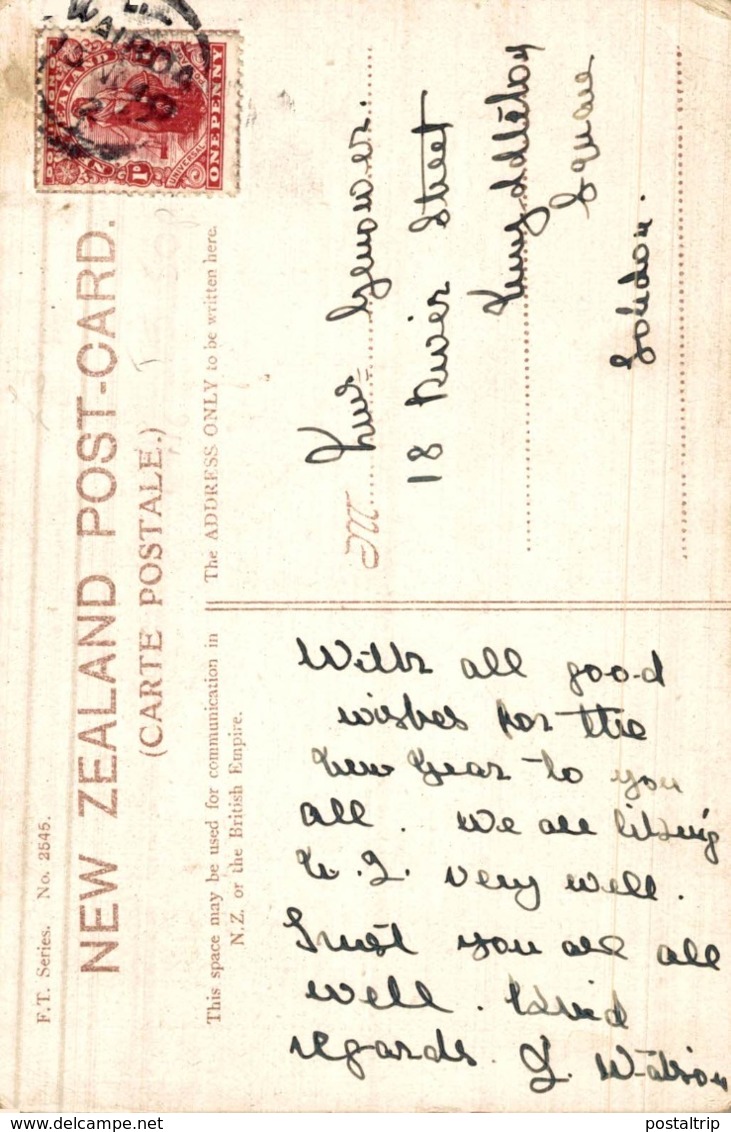 WAIROA
DOMINION OF
NEW ZEALAND
POSTAGE & REVENUE
UNIVERSAL
1D
ONE PENNY
F.T. Series. No. 2545.
NEW ZEALAND POST-CARD.
(CARTE POSTALE.)
This space may be used for communication in
N.Z. or the British Empire.
The ADDRESS ONLY to be written here.
With all good
wishes for the
New Year to you
all. We are liking
N.Z. very well.
Trust you are all
well. Kind
regards. J. Watson
M
18 River Street
Square
London.
postaltrip